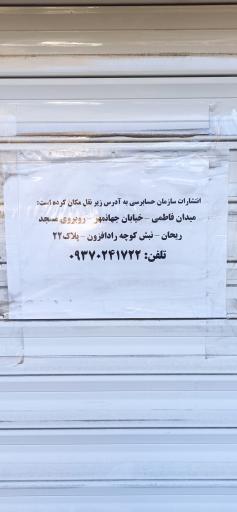 انتشارات سازمان حسابرسی به آدرس زیر نقل مکان کرده است:
میدان فاطمی - خیابان جهانمهر - روبروی مسجد
ریحان - نبش کوچه رادافزون - پلاک ۲۲
تلفن: ۰۹۳۷۰۲۴۱۷۲۲